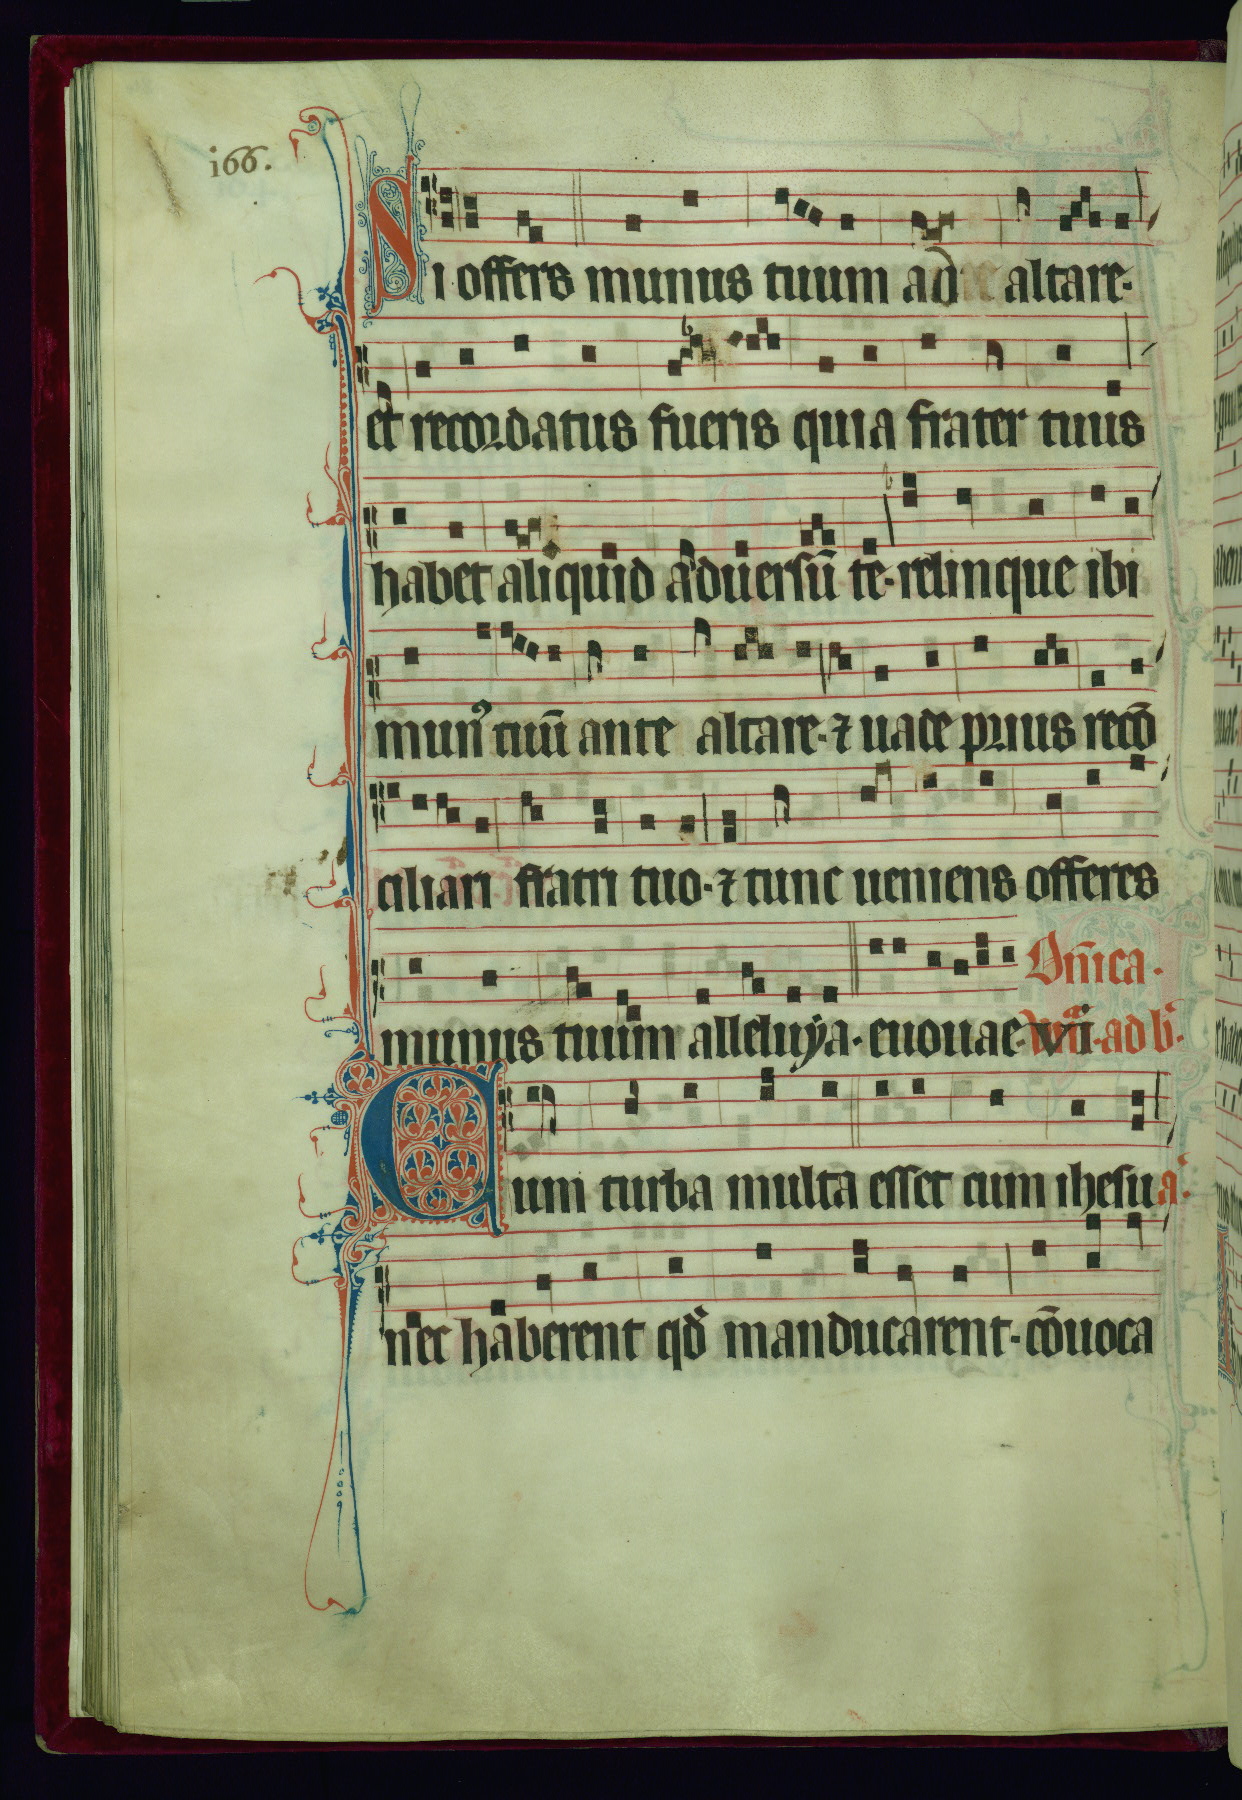 i66.
Si offers munus tuum ad altare·
et recordatus fueris quia frater tuus
habet aliquid aduersū te· relinque ibi
munꝰ tuū ante altare· ⁊ uade prius recō
ciliari fratri tuo· ⁊ tunc ueniens offeres
Dn̄ica·
munus tuum alleluÿa· euouae· vi ad b̄·
Cum turba multa esset cum ihesu a·
nec haberent qd̄ manducarent· cōuoca